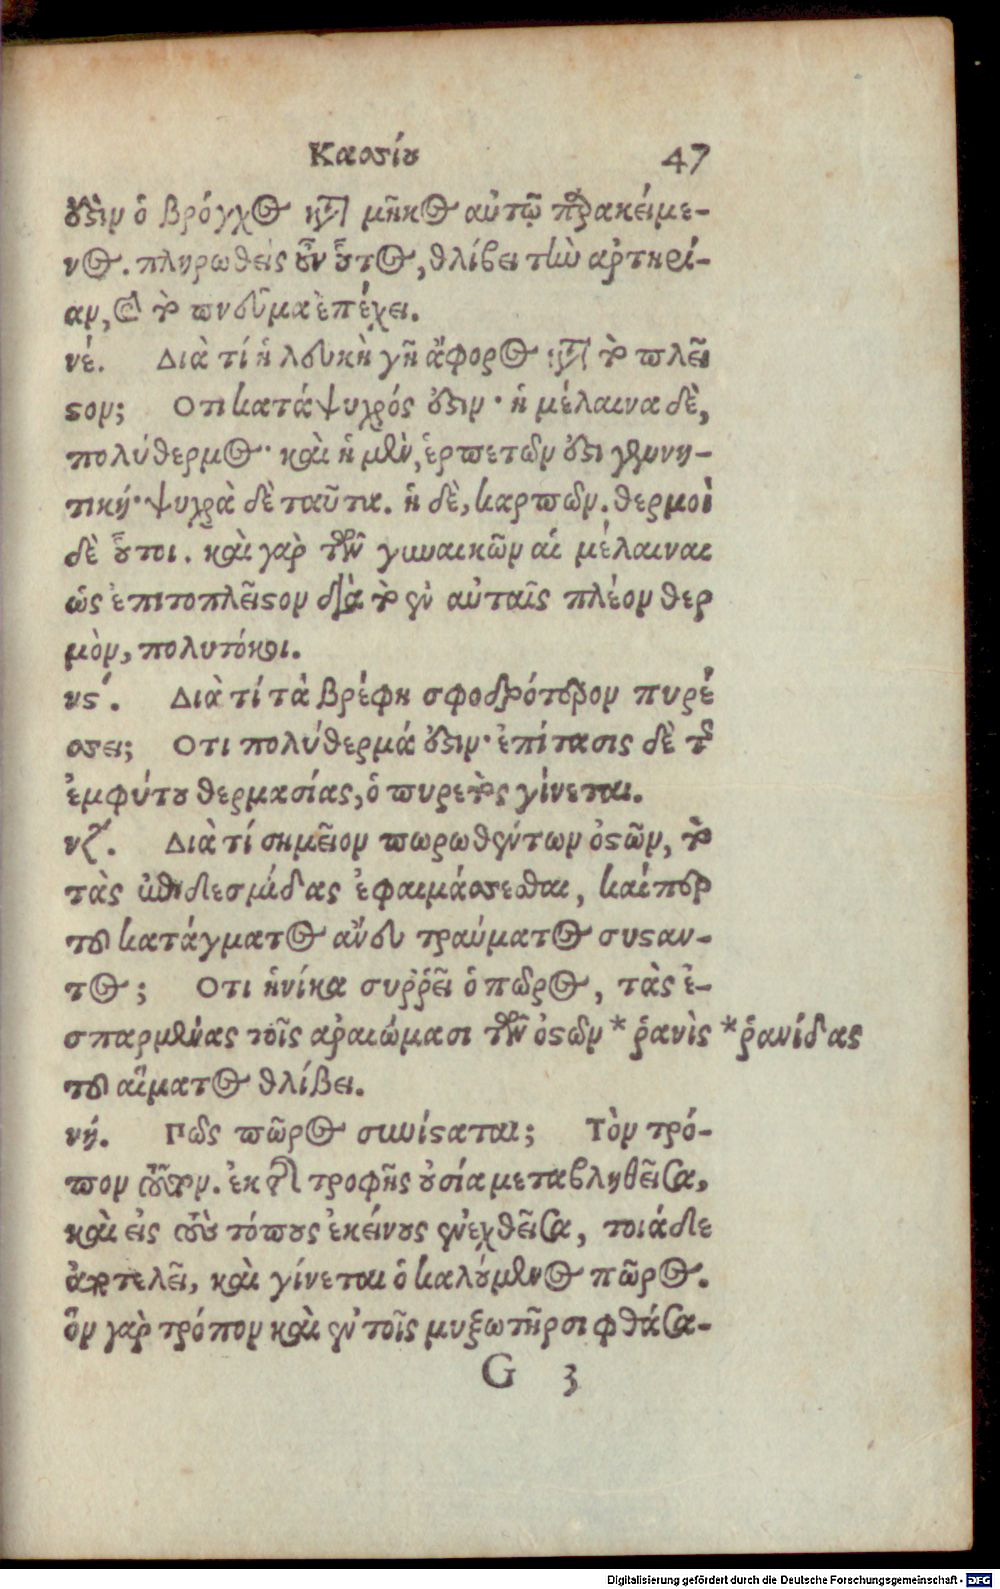 Κασσίου 47
οὖσιν ὁ βρόγχος κατὰ μῆκος αὐτῷ παρακείμε-
νος. πληρωθεὶς οὖν οὗτος, θλίβει τὴν ἀρτηρί-
αν, καὶ τὸ πνεῦμα ἐπέχει.
νέ. Διὰ τί ἡ λευκὴ γῆ ἄφορος κατὰ τὸ πλεῖ
στον; Οτι κατάψυχρός ἐστιν· ἡ μέλαινα δὲ,
πολύθερμος· καὶ ἡ μὲν, ἑρπετῶν ἐστι γεννη-
τική· ψυχρὰ δὲ ταῦτα. ἡ δὲ, καρπῶν. θερμοὶ
δὲ οὗτοι. καὶ γὰρ τῶν γυναικῶν αἱ μέλαιναι
ὡς ἐπιτοπλεῖστον διὰ τὸ ἐν αὐταῖς πλέον θερ
μὸν, πολυτόκοι.
νϛ́. Διὰ τί τὰ βρέφη σφοδρότερον πυρέ
σσει; Οτι πολύθερμά ἐστιν· ἐπίτασις δὲ τῆς
ἐμφύτου θερμασίας, ὁ πυρετὸς γίνεται.
νζ́. Διὰ τί σημεῖον πωρωθέντων ὀστῶν, τὸ
τὰς ἐπιδεσμίδας ἐφαιμάσσεσθαι, καίπερ
τοῦ κατάγματος ἄνευ τραύματος συσταν-
τος; Οτι ἡνίκα συῤῥεῖ ὁ πῶρος, τὰς ἐ-
σπαρμένας τοῖς ἀραιώμασι τῶν ὀστῶν * ῥανὶς * ῥανίδας
τοῦ αἵματος θλίβει.
νή. Πῶς πῶρος συνίσταται; Τὸν τρό-
πον τοῦτον. ἐκ τῆς τροφῆς οὐσία μεταβληθεῖσα,
καὶ εἰς τοὺς τόπους ἐκείνους ἐνεχθεῖσα, τοιάδε
ἀποτελεῖ, καὶ γίνεται ὁ καλούμενος πῶρος.
ὃν γὰρ τρόπον καὶ ἐν τοῖς μυξωτῆρσι φθάσα-
G 3
Digitalisierung gefördert durch die Deutsche Forschungsgemeinschaft - DFG